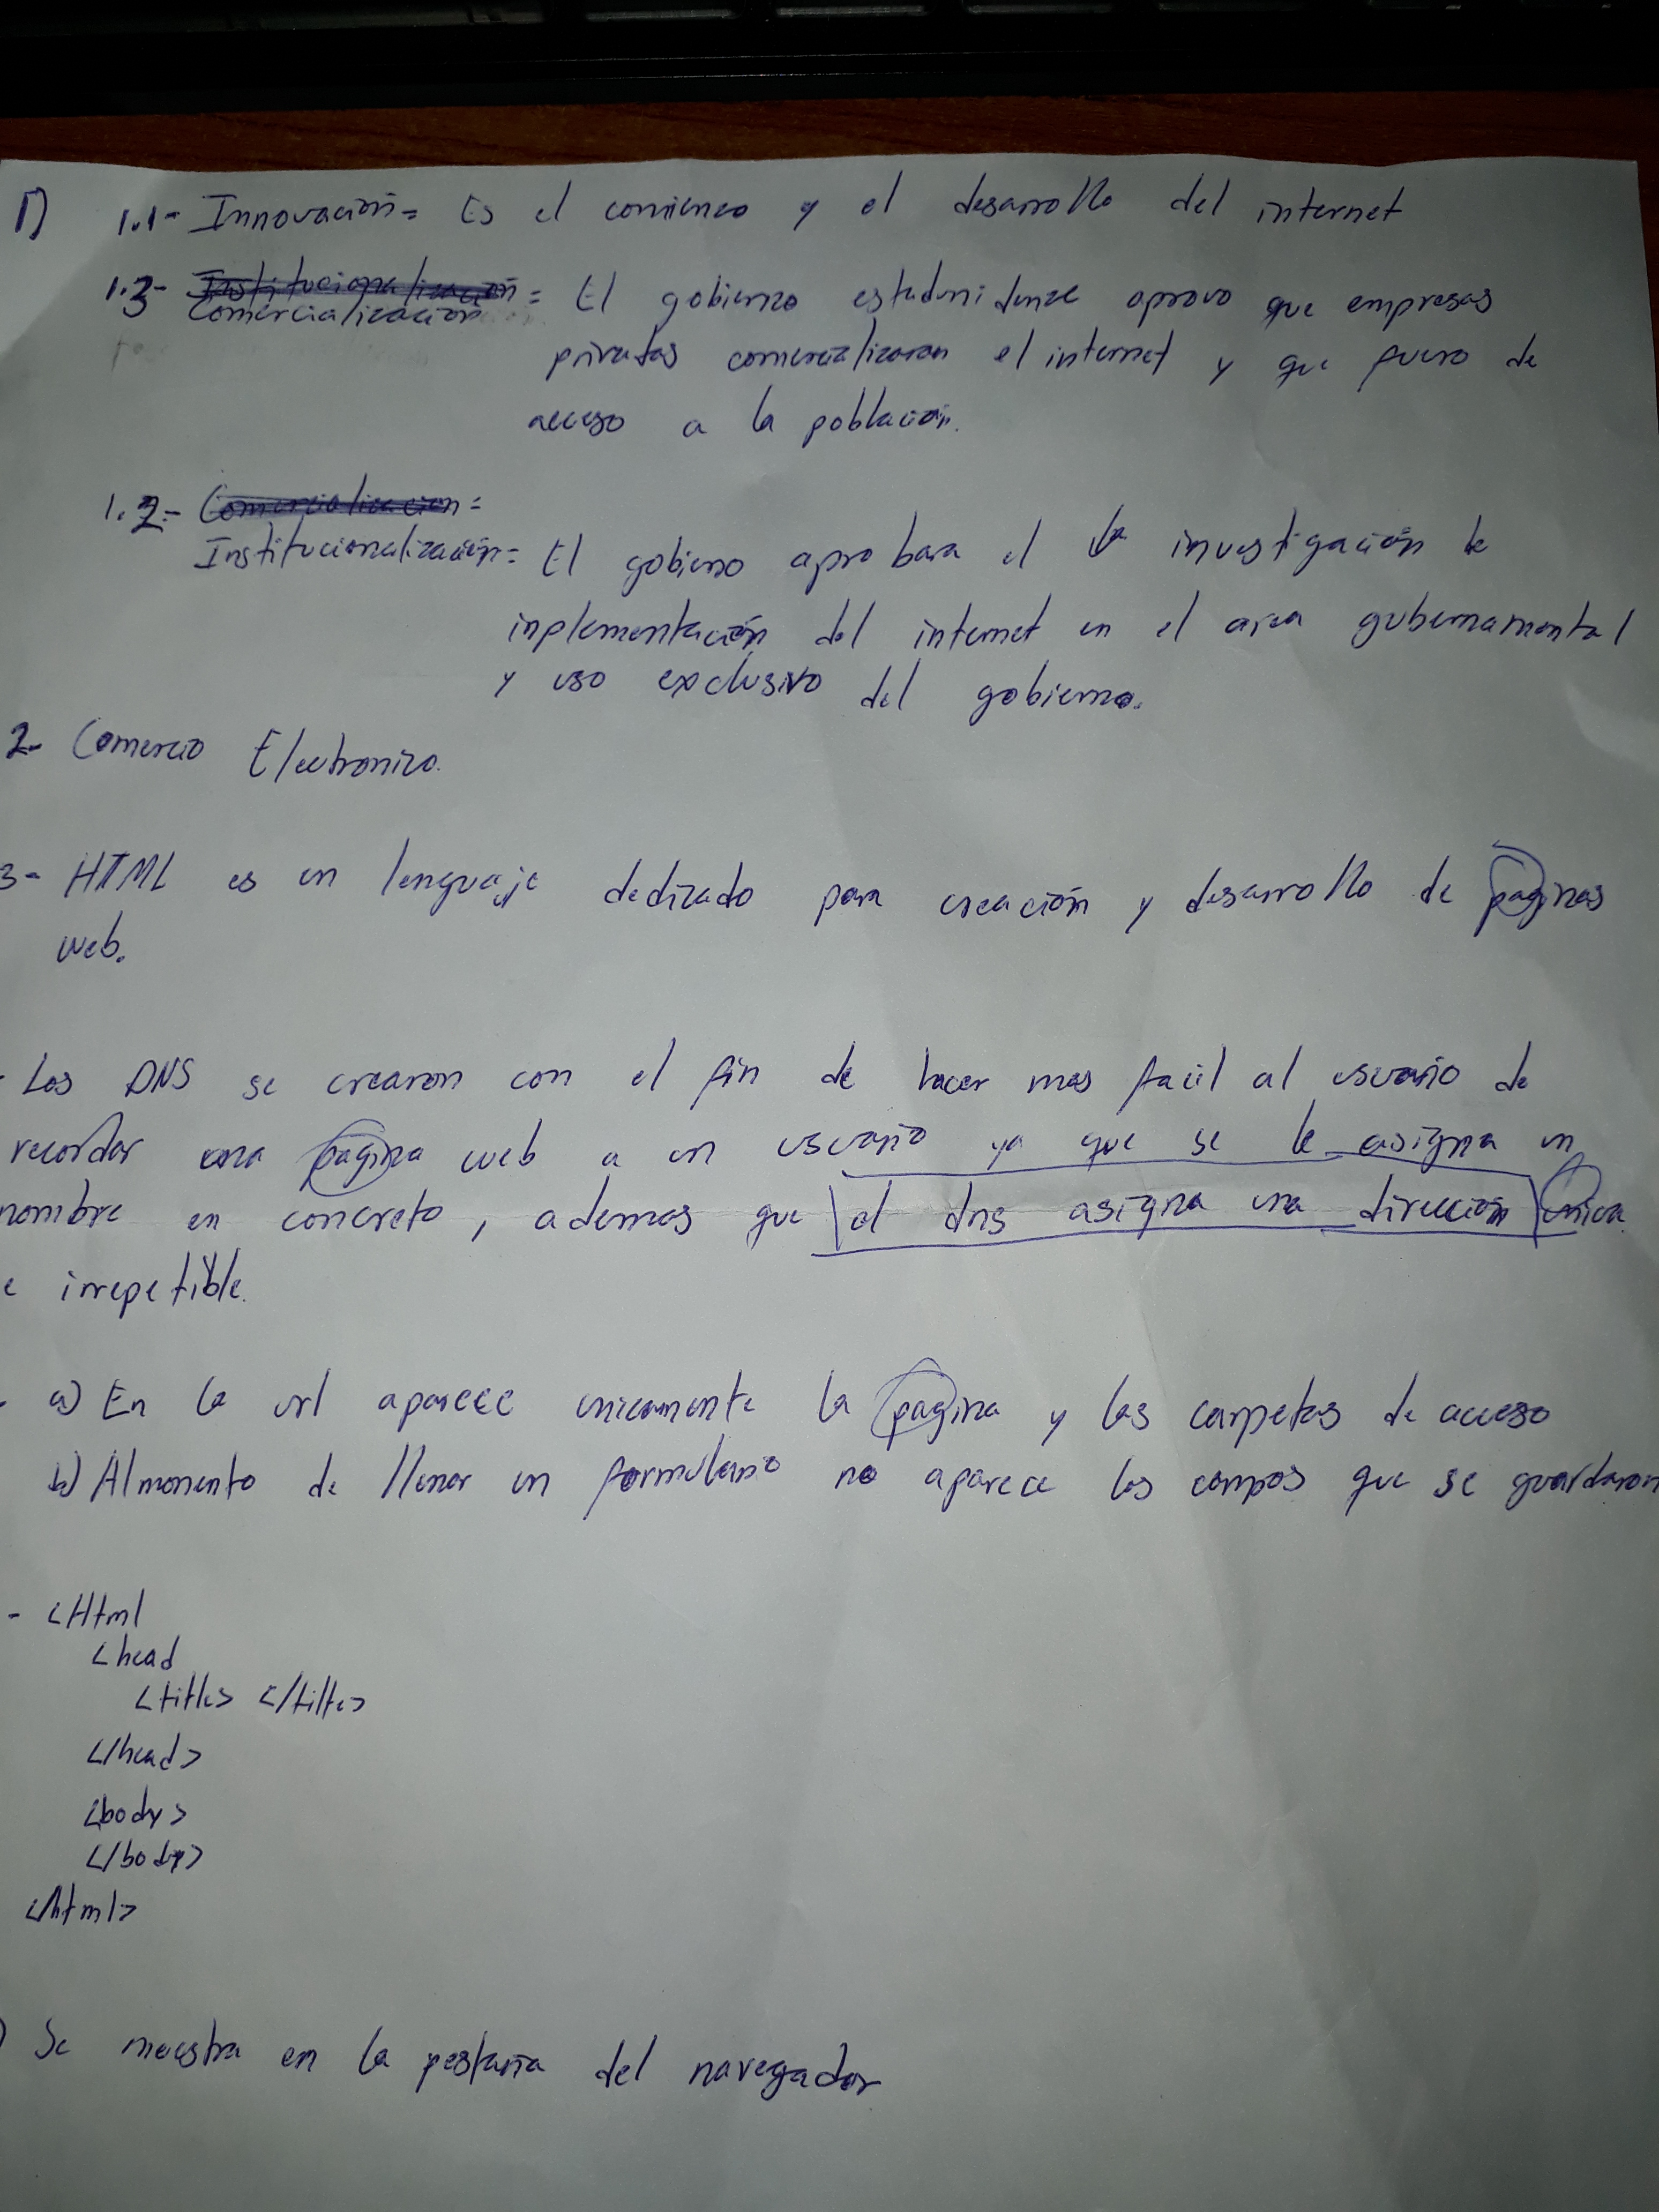 1) 1.1- Innovación= Es el comienzo y el desarrollo del internet
1.3- Institucionalización =
Comercialización El gobierno estadunidense aprovo que empresas
privatas comercializaran el internet y que fuera de
acceso a la población.
1.2- Comercializacion=
Institucionalización= El gobierno aprobara el la investigación le
inplementación del internet en el area gubernamental
y uso exclusivo del gobierno.
2- Comercio Electronico.
3- HTML es un lenguaje dedicado para creación y desarrollo de paginas
web.
- Los DNS se crearon con el fin de hacer mas facil al usuario de
recordar una pagina web a un usuario ya que se le asigna un
nombre en concreto, ademas que el dns asigna una dirección unica
e irrepetible.
- a) En la url aparece unicamente la pagina y las carpetas de acceso
b) Al momento de llenar un formulario no aparece los campos que se guardaron
- <Html
<head
<title> </title>
</head>
<body>
</body>
</html>
) Se muestra en la pestaña del navegador